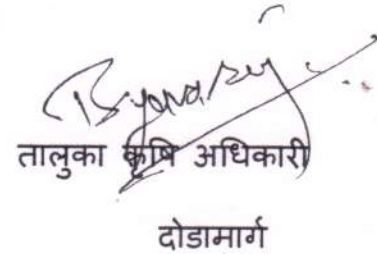 तालुका कृषि अधिकारी
दोडामार्ग